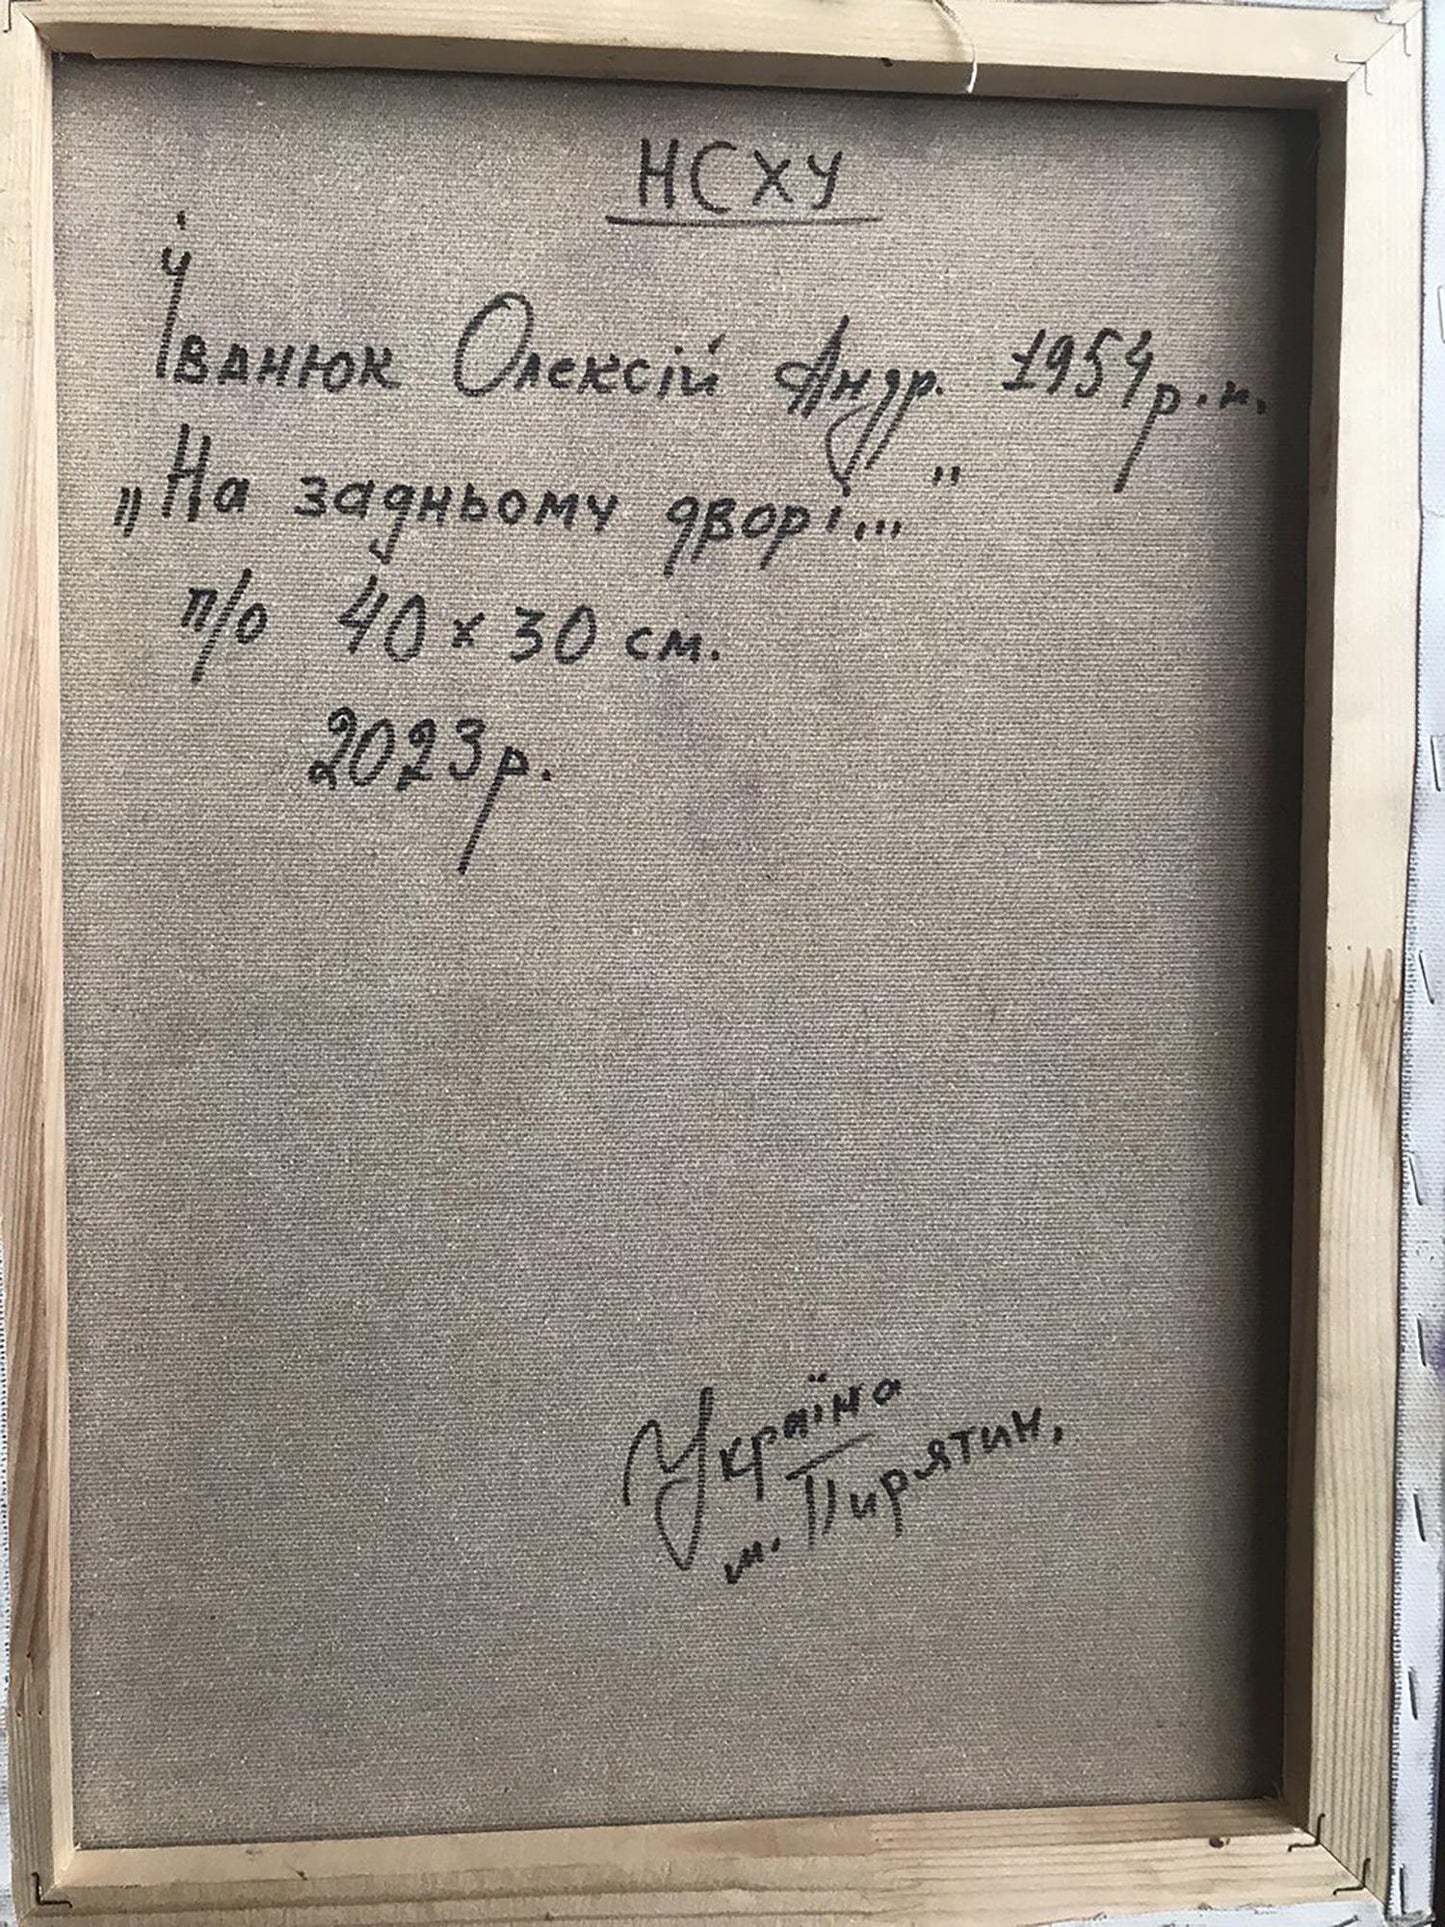 НСХУ
Іванюк Олексій Андр. 1954р.н.
„На задньому дворі..."
п/о 40х30 см.
2023р.
Україна
м. Пирятин.